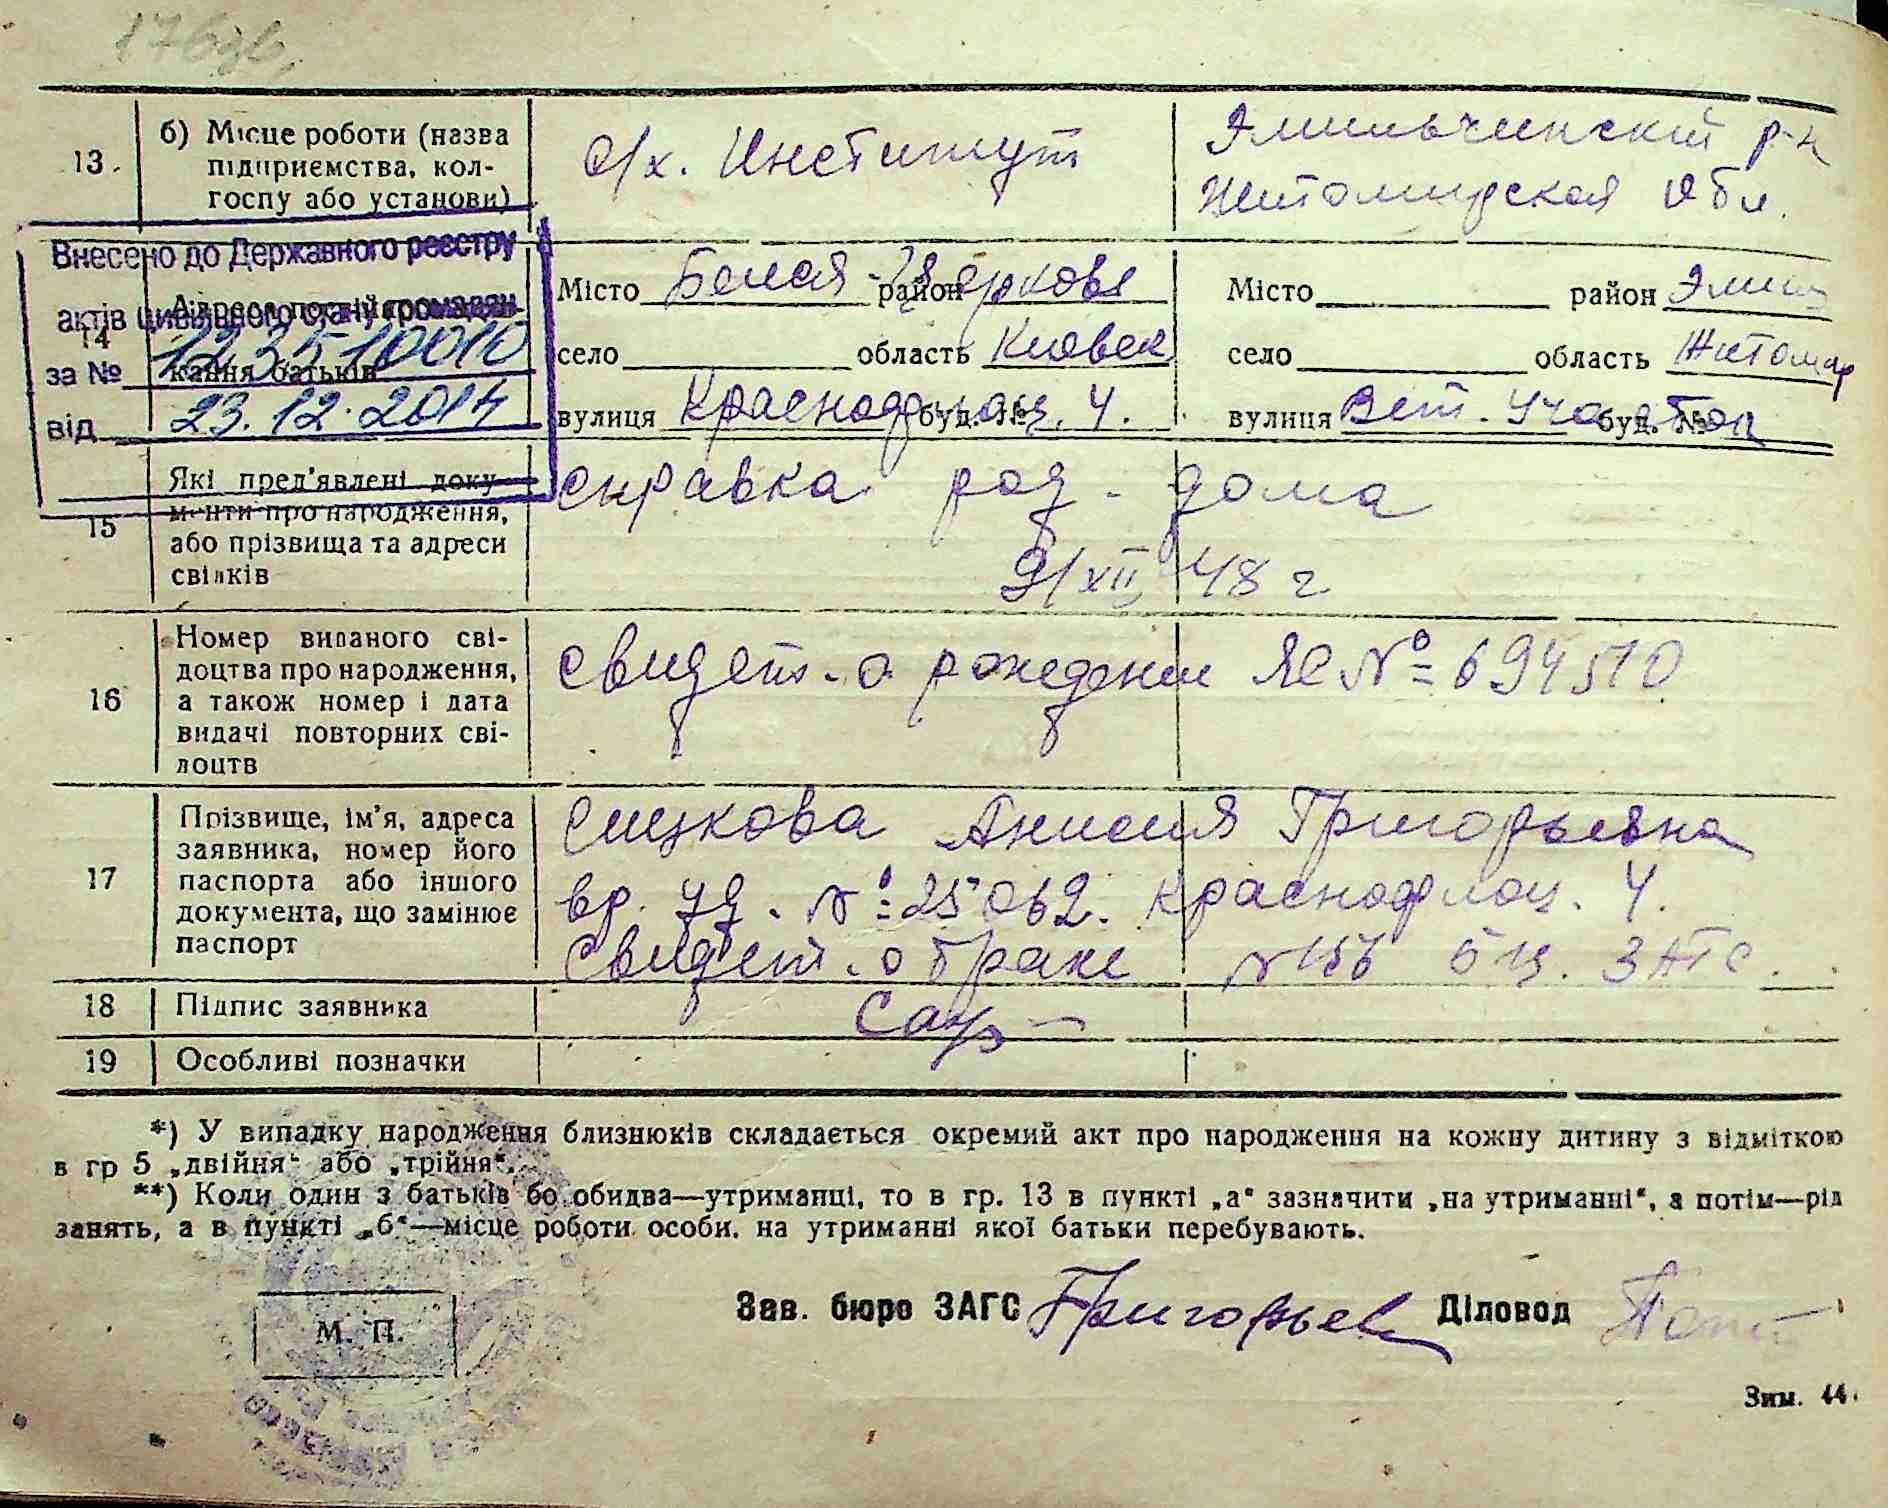 176зв.
13 б) Місце роботи (назва підприємства, колгоспу або установи)
с/х. Институт
Эмильчинский р-н
Житомирская обл.
Внесено до Державного реєстру
актів цивільного стану громадян
за № 1235 10010
від 23.12.2014
14 Адреса постій
кання батьків
Місто Белая-Церковь район
село область Киевск
вулиця Краснофлоц. 4. буд. №
Місто район Эмил
село область Житомир
вулиця Вет. Участок буд. №
15 Які пред'явлені документи про народження,
або прізвища та адреси
свідків
справка род-дома
9/XII 48 г
16 Номер виданого сві-
доцтва про народження,
а також номер і дата
видачі повторних сві-
доцтв
свидет. о рождении ЯС № 694510
17 Прізвище, ім'я, адреса
заявника, номер його
паспорта або іншого
документа, що замінює
паспорт
Анисия Григорьевна
вр. уд. № 25062. Краснофлоц. 4.
Свидет. о браке № 156 бц. ЗАГС.
18 Підпис заявника
19 Особливі позначки
*) У випадку народження близнюків складається окремий акт про народження на кожну дитину з відміткою
в гр 5 „двійня“ або „трійня“.
**) Коли один з батьків бо обидва—утриманці, то в гр. 13 в пункті „а“ зазначити „на утриманні“, а потім—рід
занять, а в пункті „б“—місце роботи особи, на утриманні якої батьки перебувають.
М. П.
Зав. бюро ЗАГС Григорьев Діловод
Зам. 44